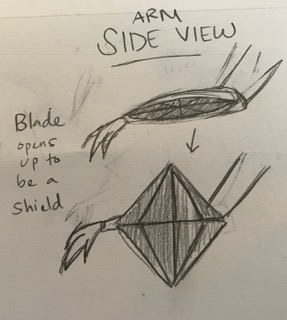 ARM
SIDE VIEW
Blade
opens
up to
be a
shield